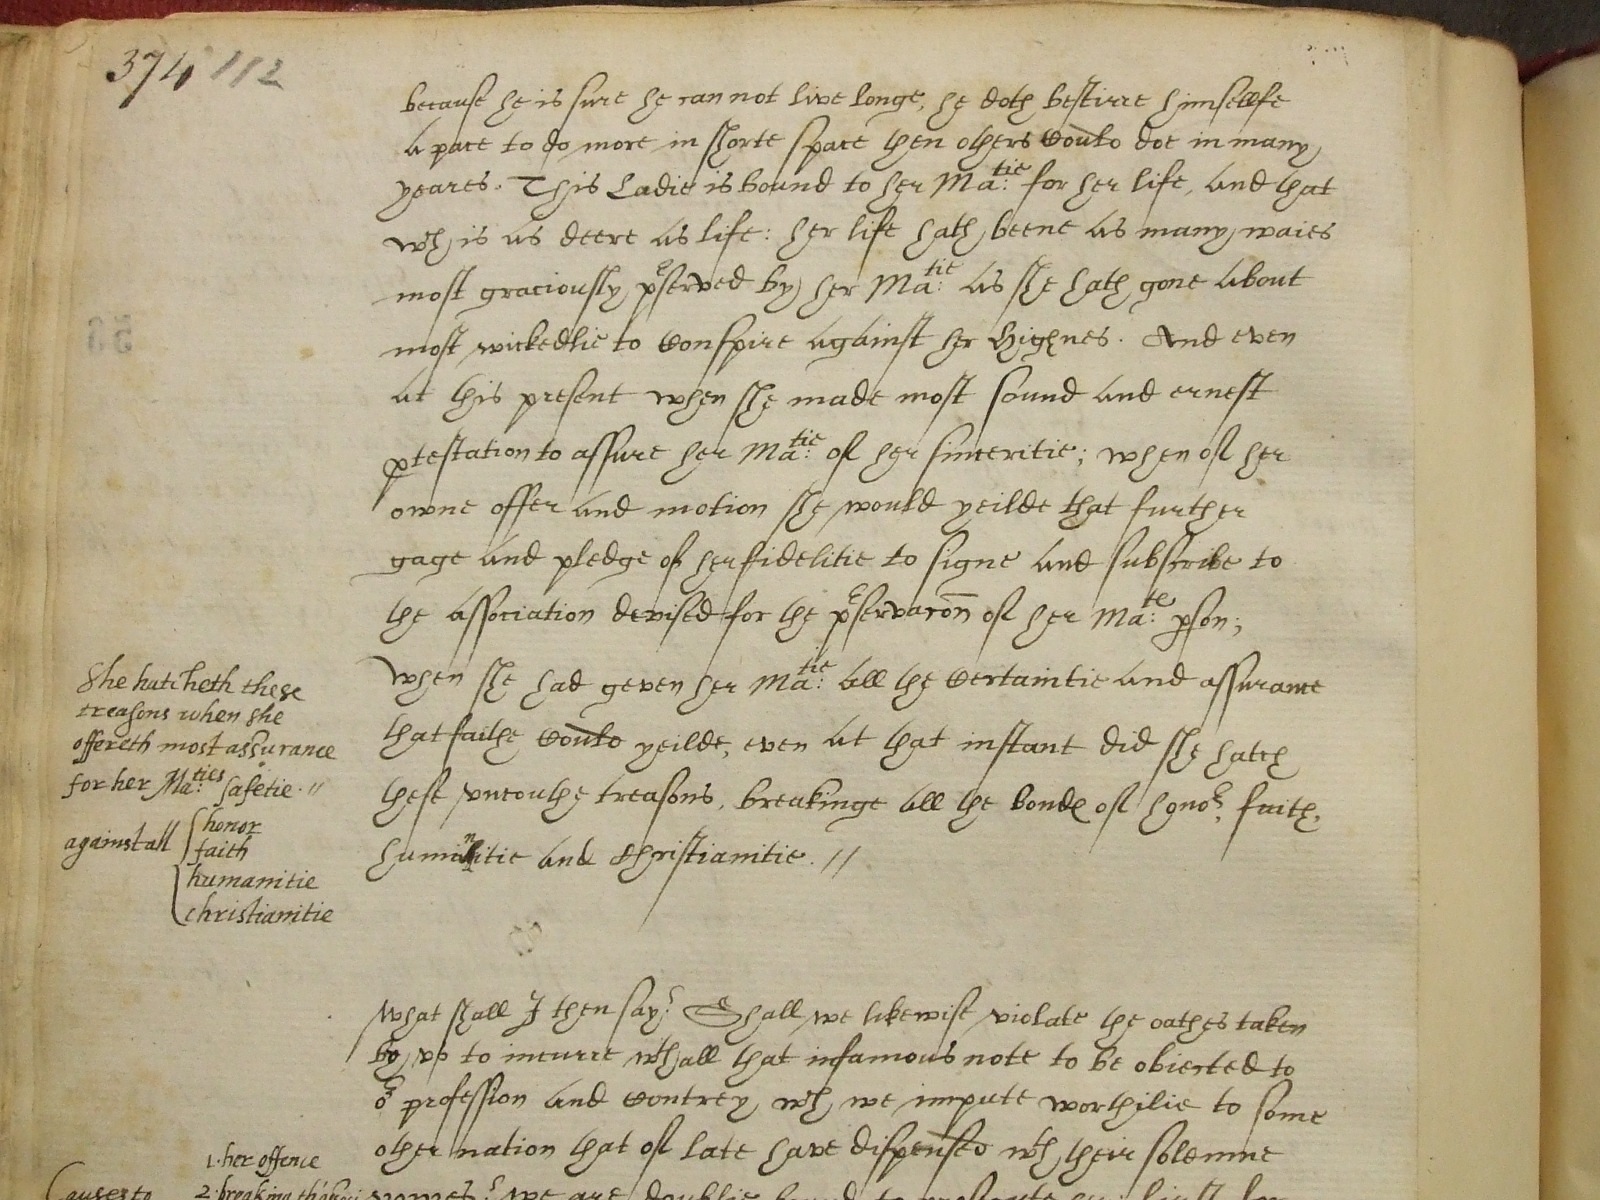 374 112
because he is sure he can not live longe, he doth bestirre himsellfe
a pace to do more in shorte space then others could doe in many
yeares. This Ladie is bound to her Ma:tie for her life, and that
wch is as deere as life: her life hath beene as many waies
most graciously pserved by her Ma:tie as she hath gone about
most wickedlie to conspire against her Highnes. And even
at this present when she made most sound and ernest
ptestation to assure her Ma:tie of her sinceritie; when of her
owne offer and motion she would yeilde that further
gage and pledge of her fidelitie to signe and subscribe to
the association devised for the pservacon of her Ma:te pson;
When she had geven her Ma:tie all the certaintie and assurance
that faithe could yeilde, even at that instant did she hatch
these vncouthe treasons, breakinge all the bondes of honor, faith,
humanitie and Christianitie. //
She hatcheth these
treasons when she
offereth most assurance
for her Ma:ties safetie. //
against all { honor
faith
humanitie
christianitie
What shall I then say? Shall we likewise violate the oathes taken
by vs to incurre wthall that infamous note to be obiected to
or profession and contrey, wch we impute worthilie to some
other nation that of late have dispensed wth their solemne
vowes? We are doublie bound to
1. her offence
2. breaking
Causes to